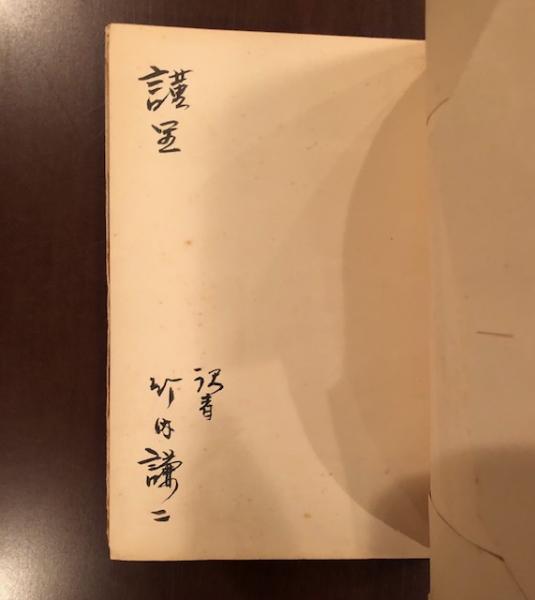 謹呈
訳者
竹内謙二